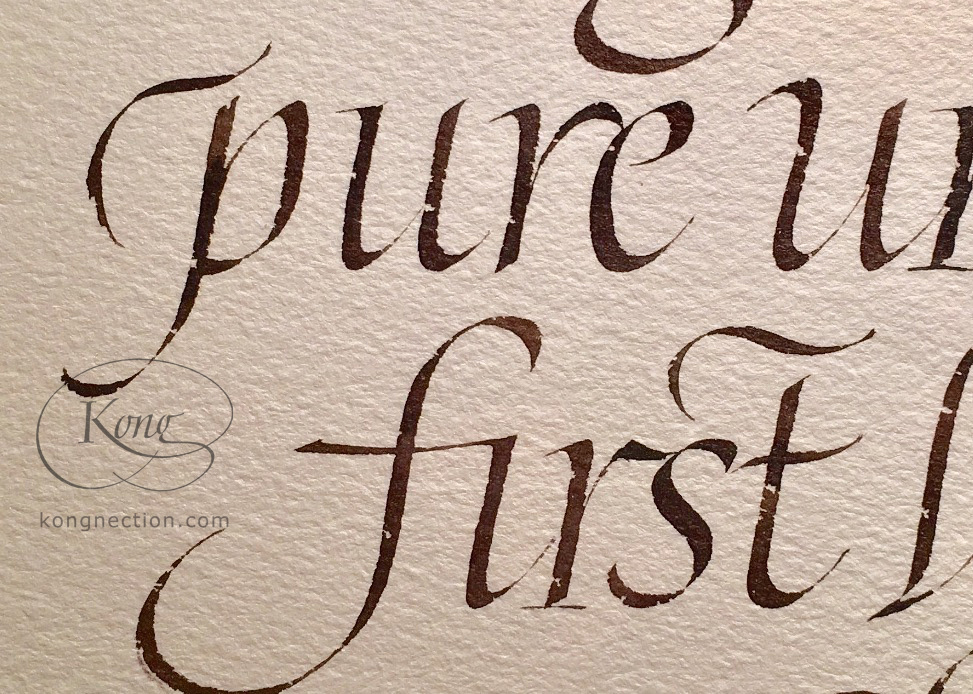 pure
first
Kong
kongnection.com